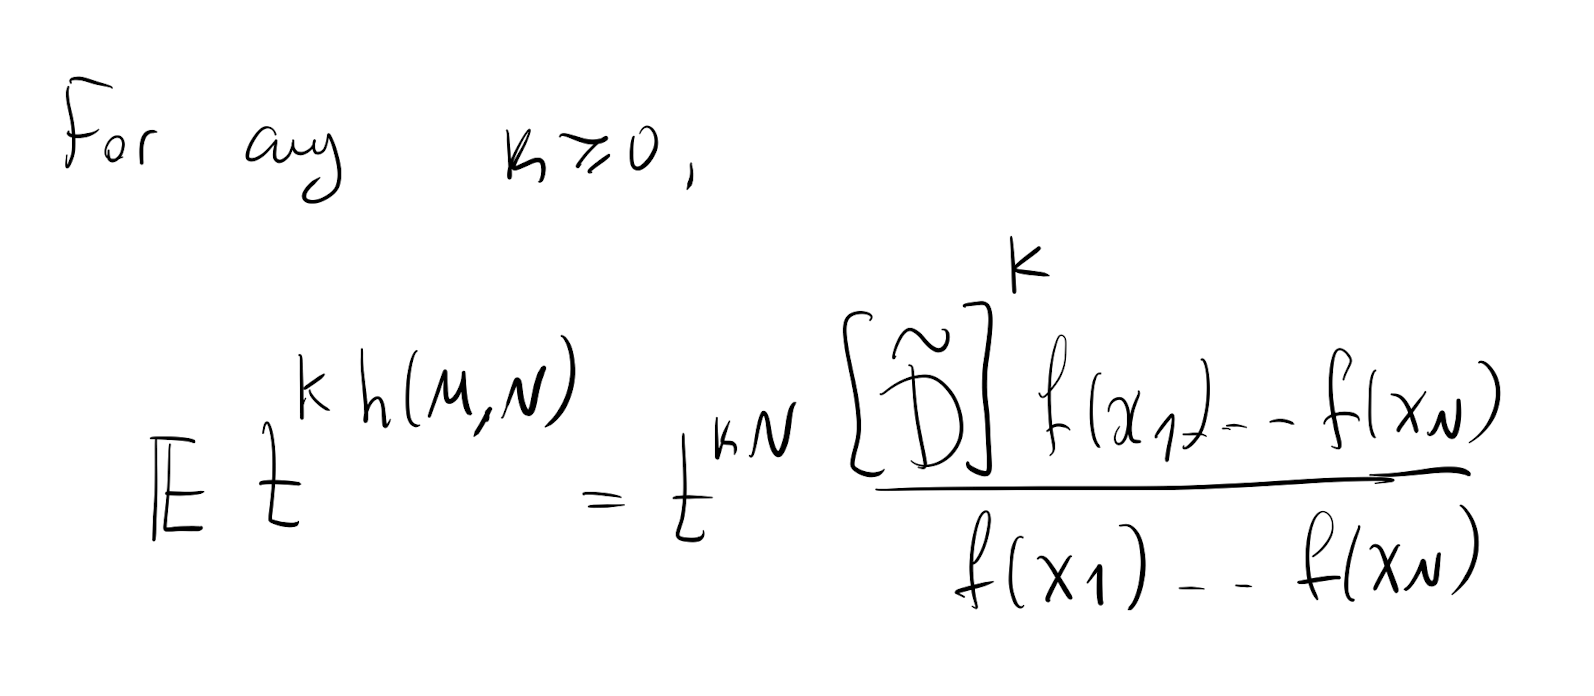 For any k ≥ 0,
𝔼 t^{k h(M,N)} = t^{kN} \frac{[\tilde{D}]^k f(x_1) -- f(x_N)}{f(x_1) -- f(x_N)}